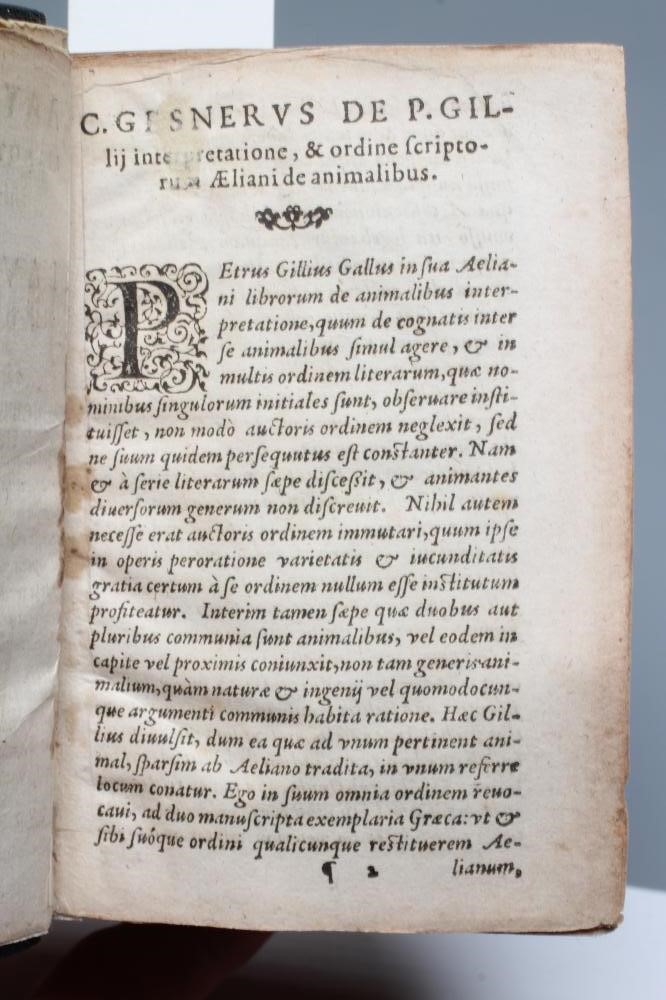 C. GESNERVS DE P. GIL-
lij interpretatione, & ordine scripto-
rum Æliani de animalibus.
PEtrus Gillius Gallus in sua Aelia-
ni librorum de animalibus inter-
pretatione, quum de cognatis inter
se animalibus simul agere, & in
multis ordinem literarum, quæ no-
minibus singulorum initiales sunt, obseruare insti-
tuisset, non modò auctoris ordinem neglexit, sed
ne suum quidem persequutus est constanter. Nam
& à serie literarum sæpe discessit, & animantes
diuersorum generum non discreuit. Nihil autem
necesse erat auctoris ordinem immutari, quum ipse
in operis peroratione varietatis & iucunditatis
gratia certum à se ordinem nullum esse institutum
profiteatur. Interim tamen sæpe quæ duobus aut
pluribus communia sunt animalibus, vel eodem in
capite vel proximis coniunxit, non tam generis ani-
malium, quàm naturæ & ingenij vel quomodocun-
que argumenti communis habita ratione. Hæc Gil-
lius diuulsit, dum ea quæ ad vnum pertinent ani-
mal, sparsim ab Aeliano tradita, in vnum referre
locum conatur. Ego in suum omnia ordinem reuo-
caui, ad duo manuscripta exemplaria Græca: vt &
sibi suóque ordini qualicunque restituerem Ae-
¶ 2 lianum,